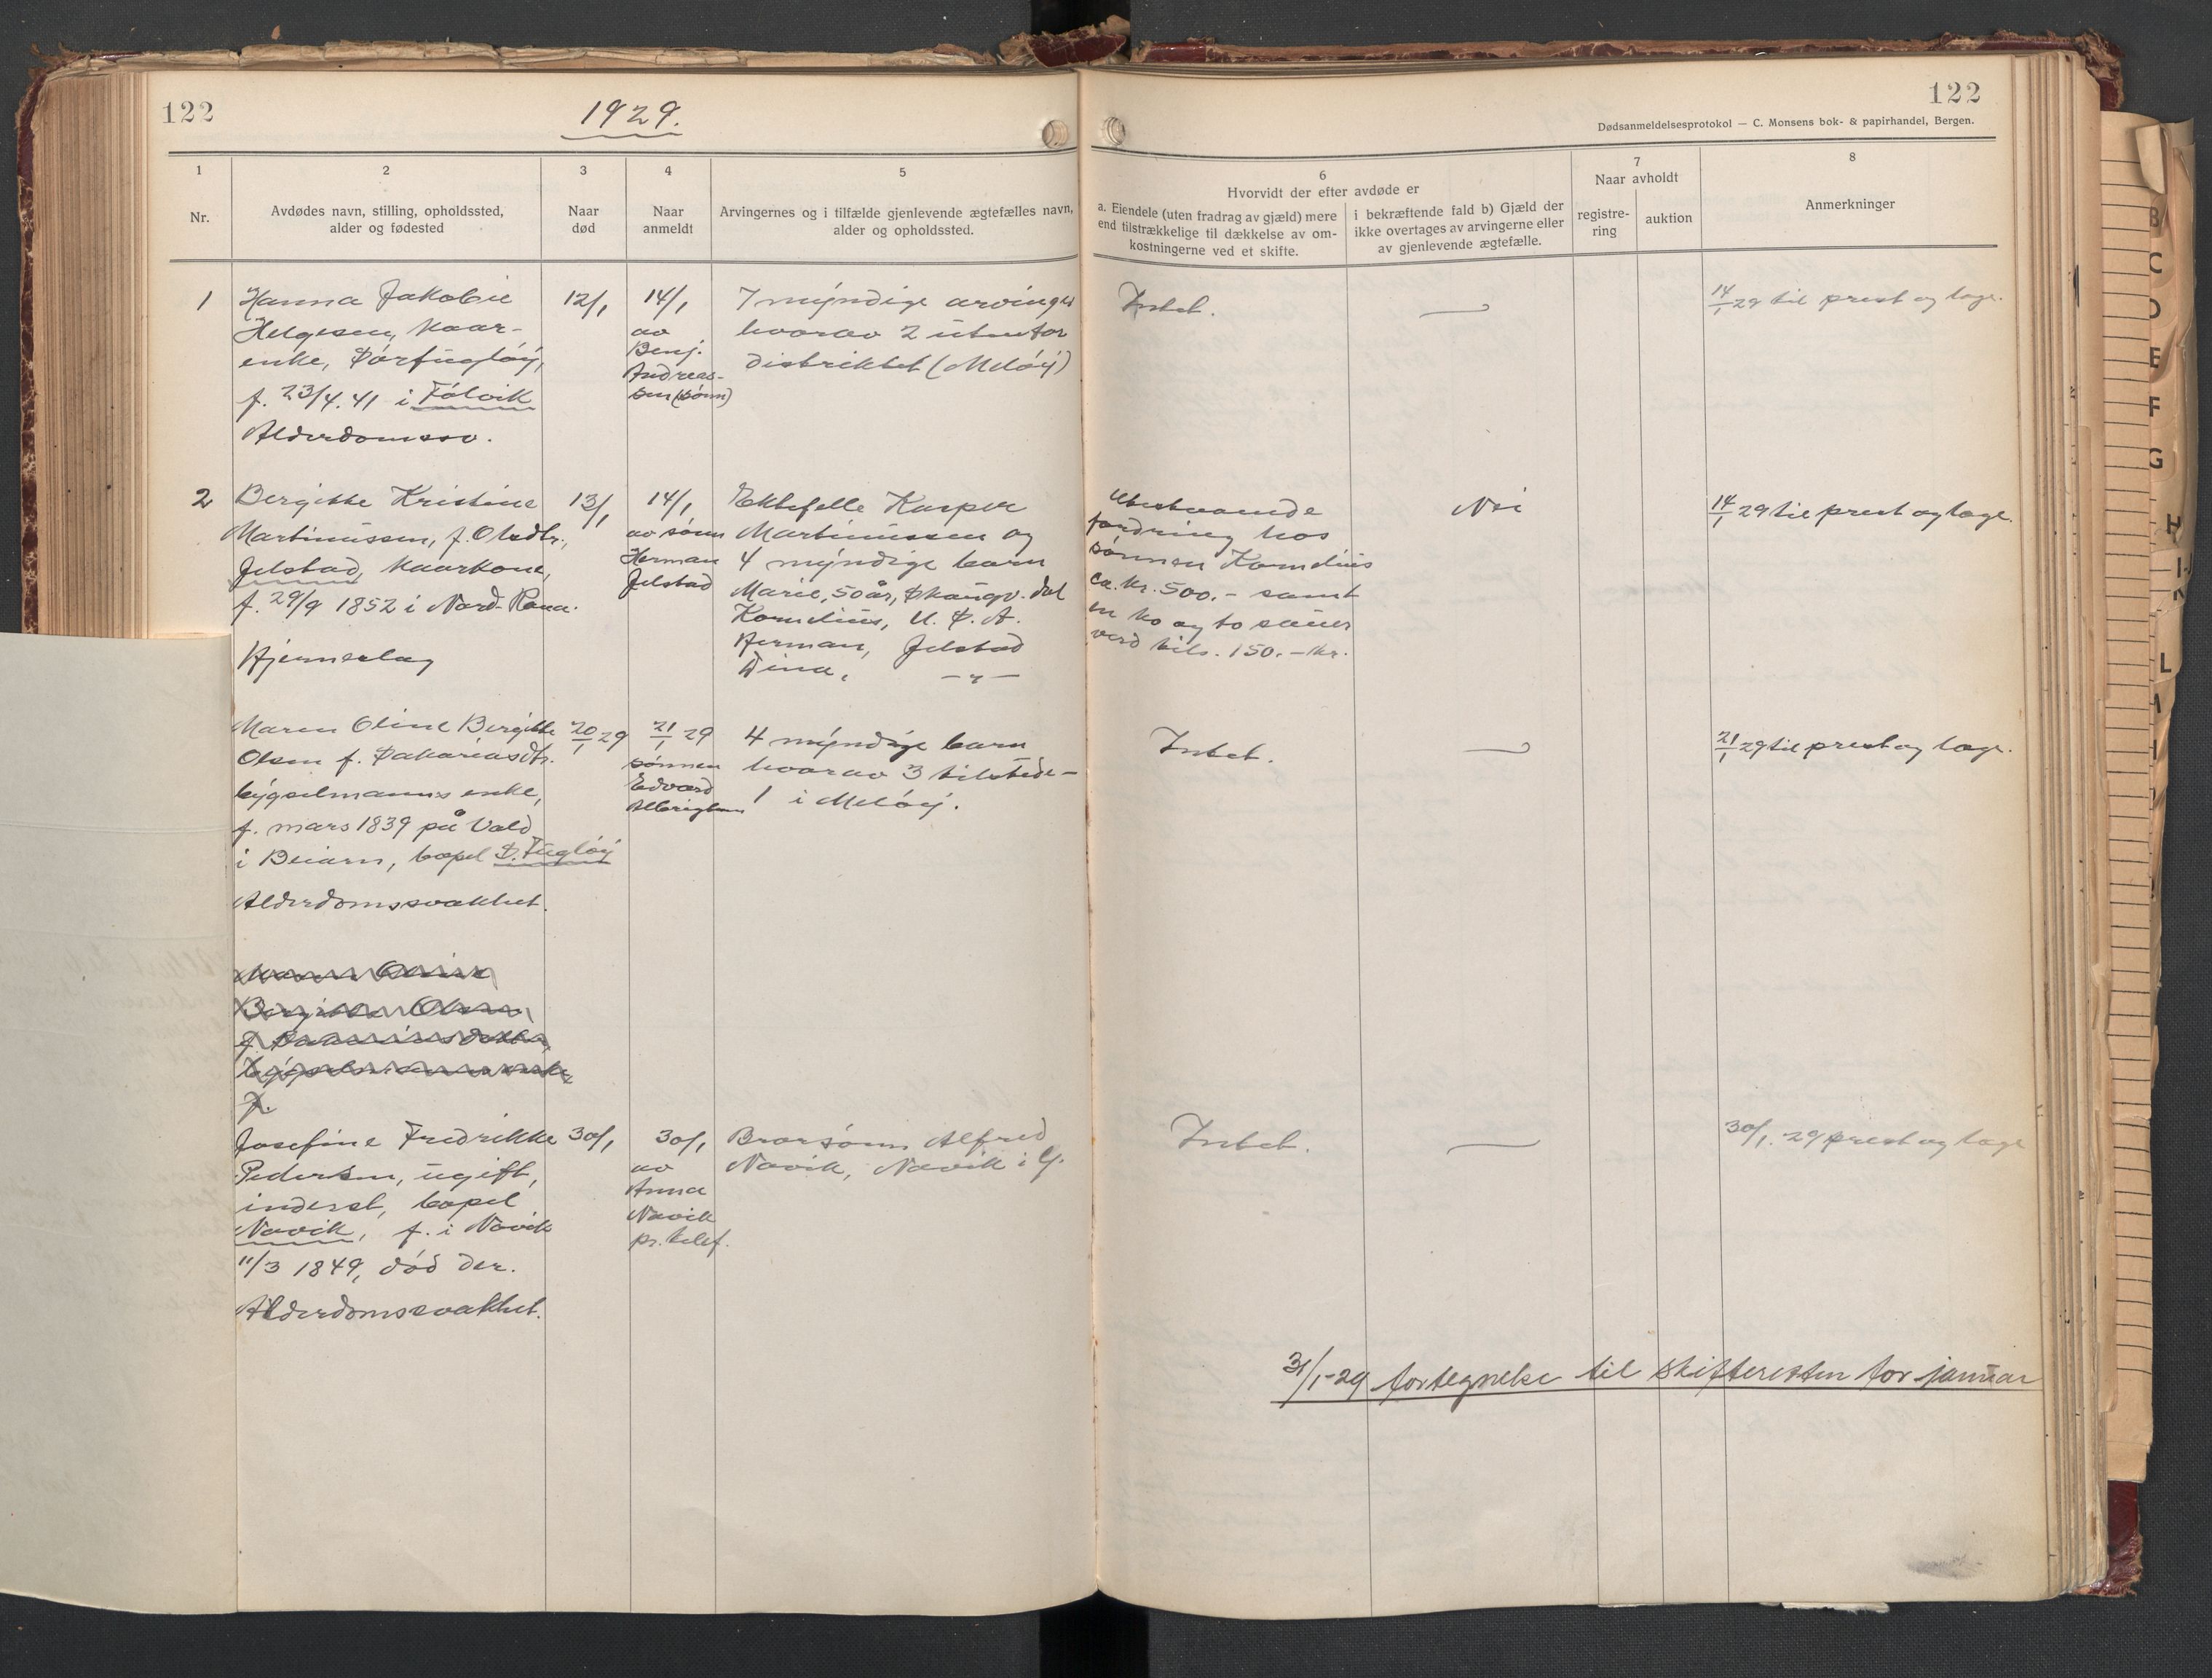 122
1929.
122
Dødsanmeldelsesprotokol — C. Monsens bok- & papirhandel, Bergen.
1
Nr.
2
Avdødes navn, stilling, opholdssted,
alder og fødested
3
Naar
død
4
Naar
anmeldt
5
Arvingernes og i tilfælde gjenlevende ægtefælles navn,
alder og opholdssted.
6
Hvorvidt der efter avdøde er
a. Eiendele (uten fradrag av gjæld) mere
end tilstrækkelige til dækkelse av om-
kostningerne ved et skifte.
i bekræftende fald b) Gjæld der
ikke overtages av arvingerne eller
av gjenlevende ægtefælle.
7
Naar avholdt
registre-
ring
auktion
8
Anmerkninger
1
Hanna Jakobie
Helgesen, kaar-
enke, Sørfugløy,
f. 23/4. 41 i Følvik
Alderdomssv.
12/1
14/1
av
Benj.
Andreas-
sen (sønn)
7 myndige arvinger
hvorav 2 utenfor
distriktet (Meløy)
Intet.
14/1 29 til prest og læge.
2
Bergitte Kristine
Martinussen, f. Olsdtr.,
Jelstad, kaarkone,
f. 29/9 1852 i Nord-Rana.
Hjerneslag
13/1
14/1
av sønn
Herman
Jelstad
Ektefelle Kasper
Martinussen og
4 myndige barn
Marie, 50 år, Skaugv. dal
Kornelius, U. S. A.
Herman, Jelstad
Dina, — " —
Utestaaende
fordring hos
sønnen Kornelius
ca. kr. 500.- samt
en ko og to sauer
verd tils. 150.- kr.
Nei
14/1 29 til prest og læge.
Maren Oline Bergitte
Olsen f. Sakariasdtr.
bygselmanns enke,
f. mars 1839 på Vold
i Beiarn, bopel S. Fugløy
Alderdomssvakhet.
20/1 29
21/1 29
sønnen
Edvard
Albrigtsen
4 myndige barn
hvorav 3 tilstede-
1 i Meløy.
Intet.
21/1 29 til prest og læge.
Maren Oline
Bergitte Olsen
f. Sakariasdatter,
bygselmanns enke,
f.
Josefine Fredrikke
Pedersen, ugift,
inderst, bopel
Novik, f. i Novik
11/3 1849, død der.
Alderdomssvakhet.
30/1
30/1
av
Anna
Novik
pr. telef.
Brorsønn Alfred
Novik, Novik i G.
Intet.
30/1. 29 prest og læge
31/1-29 fortegnelse til skifteretten for januar